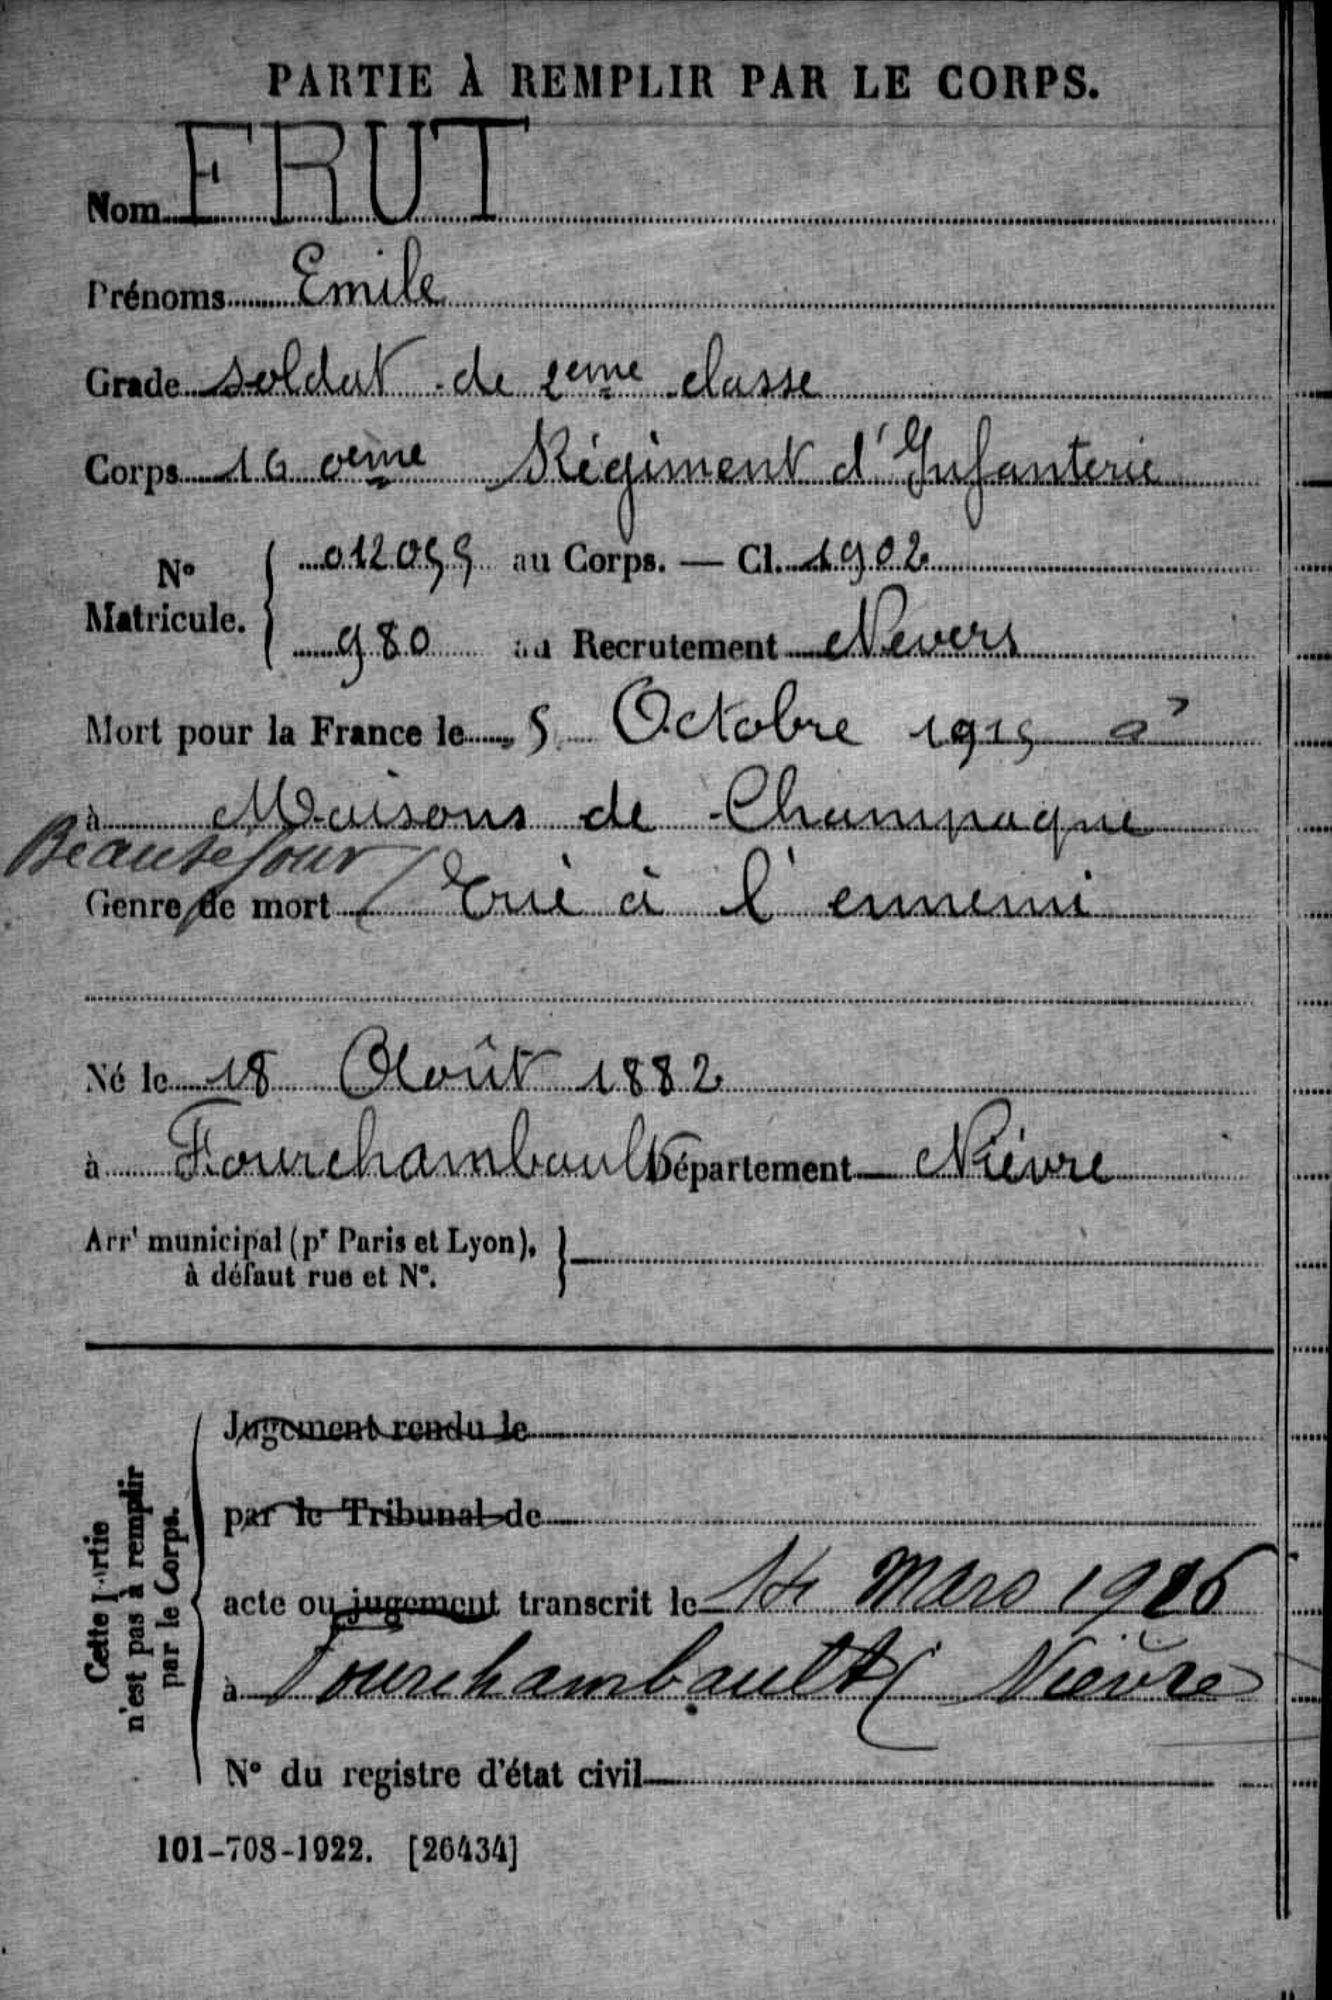 PARTIE À REMPLIR PAR LE CORPS.
Nom FRUT
Prénoms Emile
Grade soldat de 2eme classe
Corps 160eme Régiment d'Infanterie
N° Matricule. { 012055 au Corps. — Cl. 1902
980 au Recrutement Nevers
Mort pour la France le 5 Octobre 1915 à
à Maisons de Champagne
Beausejour
Genre de mort Tué à l'ennemi
Né le 18 Août 1882
à Fourchambault Département Nièvre
Arrt municipal (pr Paris et Lyon), à défaut rue et N°. }
Cette partie n'est pas à remplir par le Corps.
Jugement rendu le
par le Tribunal de
acte ou jugement transcrit le 14 Mars 1916
à Fourchambault (Nièvre
N° du registre d'état civil
101-708-1922. [26434]